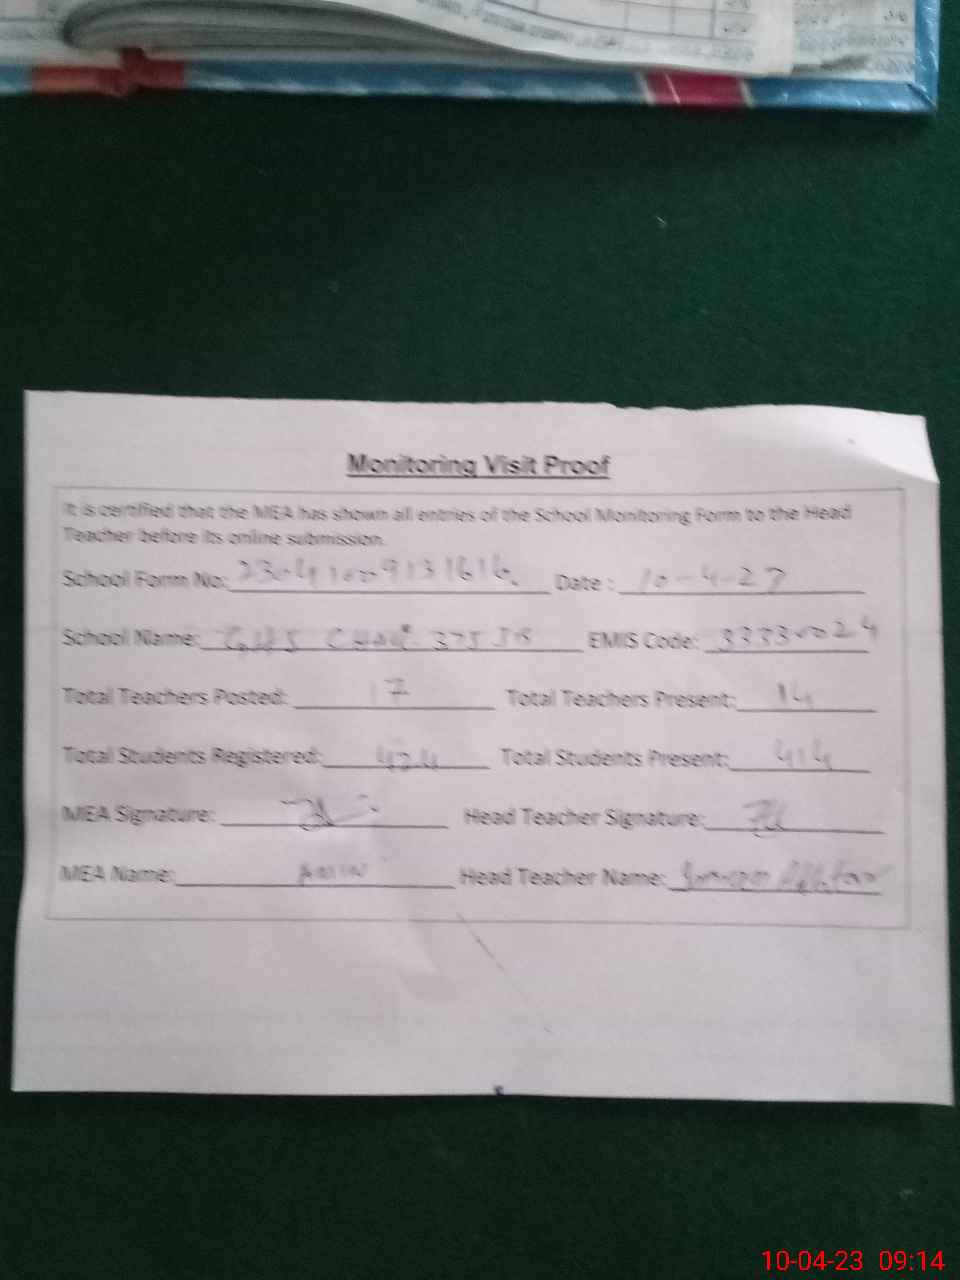 Monitoring Visit Proof
It is certified that the MEA has shown all entries of the School Monitoring Form to the Head
Teacher before its online submission.
School Form No: Date : 10-4-23
School Name: GHS CHAK 375 JB EMIS Code: 33330024
Total Teachers Posted: 17 Total Teachers Present: 14
Total Students Registered: 424 Total Students Present: 414
MEA Signature: Head Teacher Signature:
MEA Name: Amin Head Teacher Name:
10-04-23 09:14